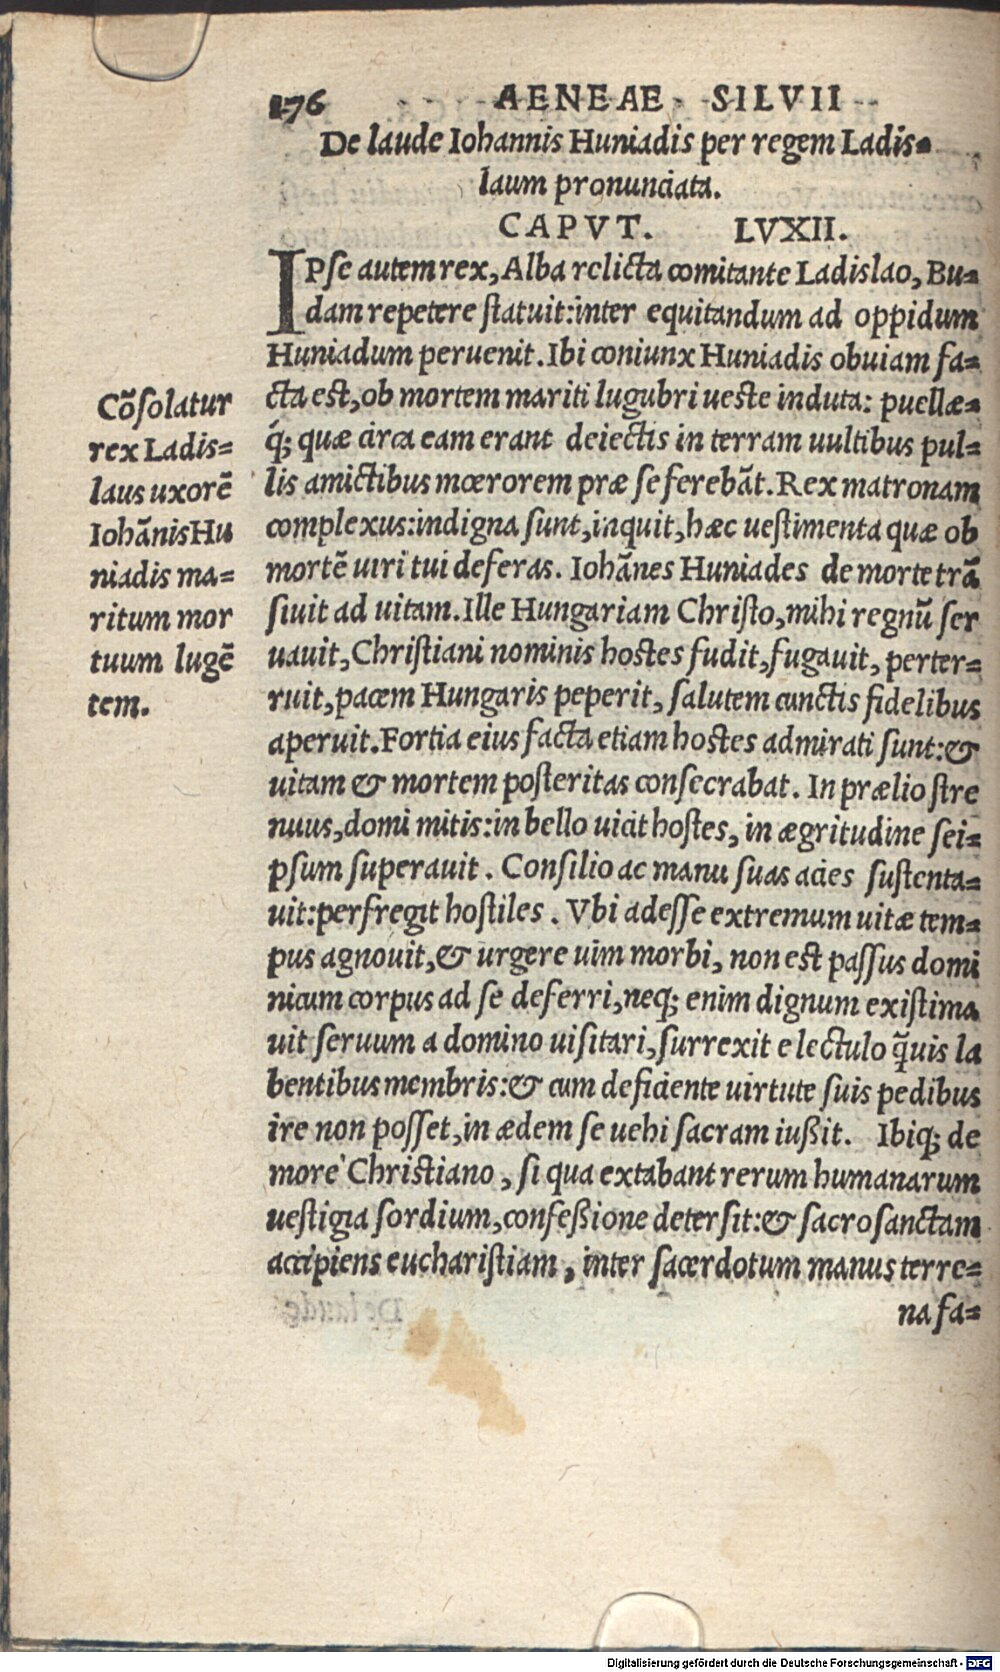 176 AENEAE SILVII
De laude Iohannis Huniadis per regem Ladis=
laum pronunciata.
CAPVT. LVXII.
IPse autem rex, Alba relicta comitante Ladislao, Bu=
dam repetere statuit: inter equitandum ad oppidum
Huniadum peruenit. Ibi coniunx Huniadis obuiam fa=
cta est, ob mortem mariti lugubri ueste induta: puellæ=
q́; quæ circa eam erant deiectis in terram uultibus pul=
lis amictibus mœrorem præ se ferebāt. Rex matronam
complexus: indigna sunt, inquit, hæc uestimenta quæ ob
mortē uiri tui deferas. Iohānes Huniades de morte trā
siuit ad uitam. Ille Hungariam Christo, mihi regnū ser
uauit, Christiani nominis hostes fudit, fugauit, perter=
ruit, pacem Hungaris peperit, salutem cunctis fidelibus
aperuit. Fortia eius facta etiam hostes admirati sunt: &
uitam & mortem posteritas consecrabat. In prælio stre
nuus, domi mitis: in bello uicit hostes, in ægritudine sei=
psum superauit. Consilio ac manu suas acies sustenta=
uit: perfregit hostiles. Vbi adesse extremum uitæ tem=
pus agnouit, & urgere uim morbi, non est passus domi
nicum corpus ad se deferri, neq; enim dignum existima
uit seruum a domino uisitari, surrexit e lectulo q̄uis la
bentibus membris: & cum deficiente uirtute suis pedibus
ire non posset, in ædem se uehi sacram iußit. Ibiq; de
more Christiano, si qua extabant rerum humanarum
uestigia sordium, confeßione detersit: & sacrosanctam
accipiens eucharistiam, inter sacerdotum manus terre=
na fa=
Cōsolatur
rex Ladis=
laus uxorē
Iohānis Hu
niadis ma=
ritum mor
tuum lugē
tem.
Digitalisierung gefördert durch die Deutsche Forschungsgemeinschaft - DFG